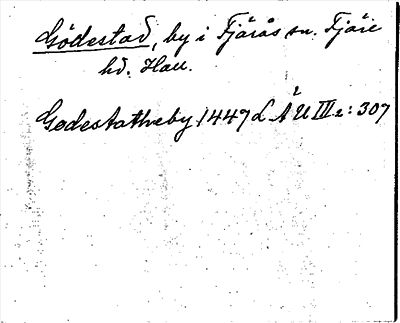 Gödestad, by i Fjärås sn. Fjäre
hd. Hall.
Godestathæby 1447 L ÅU III2: 307